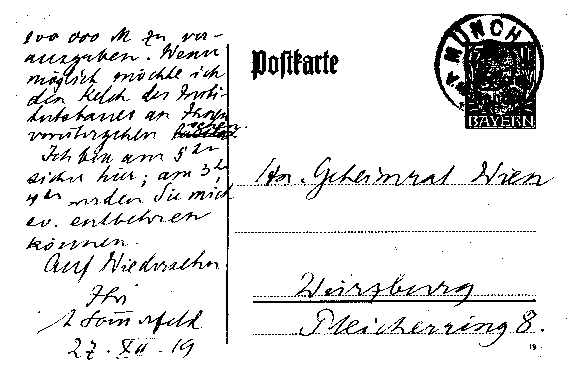 100 000 M zu ver-
ausgaben. Wenn
möglich möchte ich
den Kelch des Insti-
tutsbaues an Ihnen
vorübergehen
Ich bin am 5ten
sicher hier; am 3ten
4ten werden Sie mich
ev. entbehren
können.
Auf Wiedersehn
Ihr
A Sommerfeld
27. XII. 19
Postkarte
MÜNCH
BAYERN
Hn. Geheimrat Wien
Würzburg
Pleicherring 8.
19